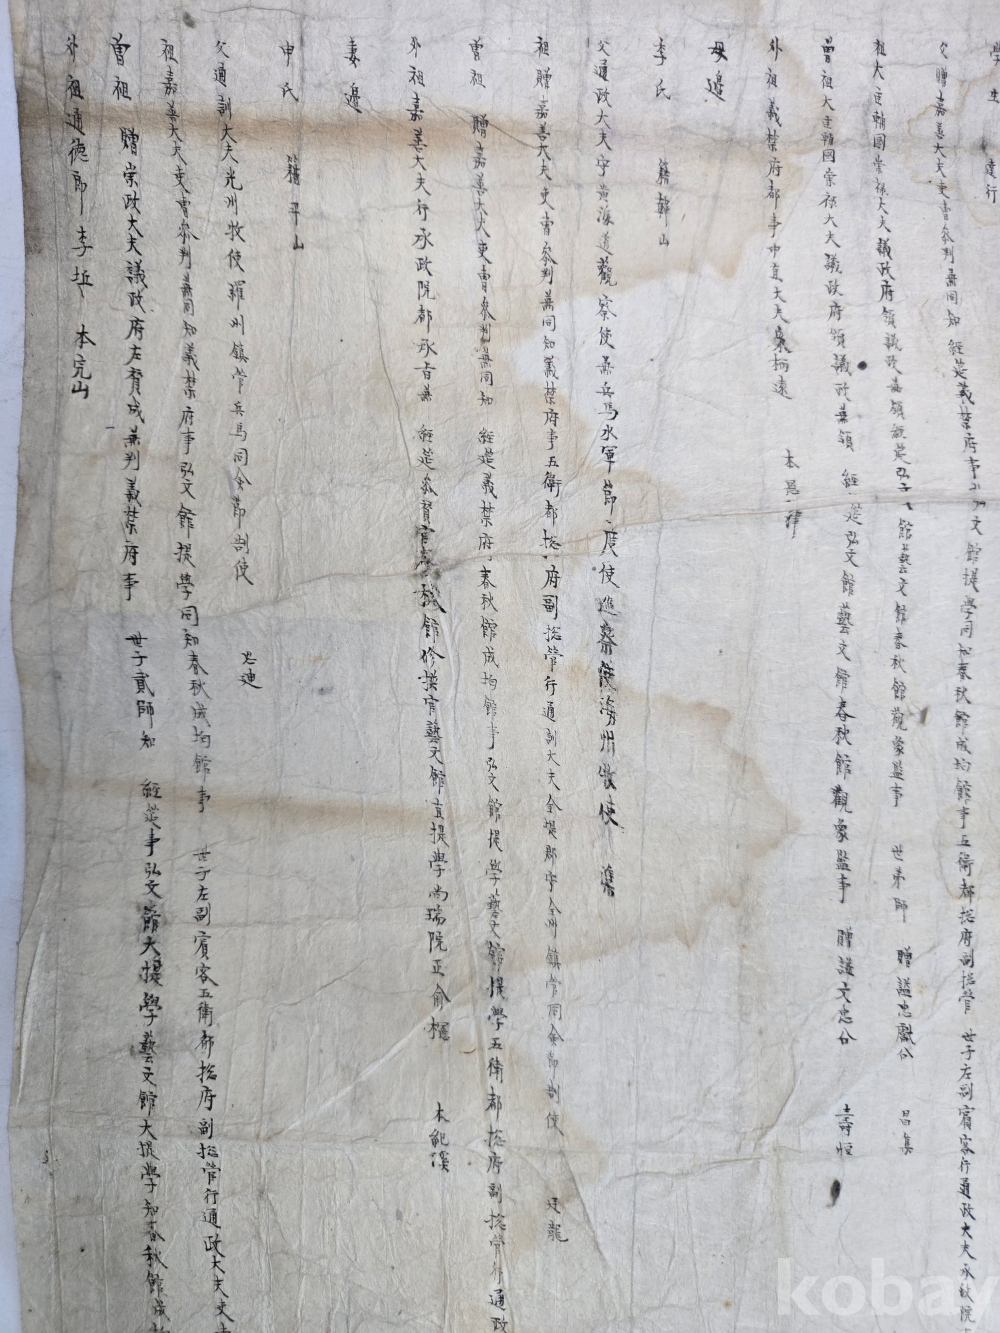 學生 達行
父贈嘉善大夫吏曹參判兼同知 經筵義禁府事弘文館提學同知春秋館成均館事五衛都摠府副摠管 世子左副賓客行通政大夫承政院
祖大匡輔國崇祿大夫議政府領議政兼領經筵弘文館藝文館春秋館觀象監事 世弟師 贈諡忠獻公 昌集
曾祖大匡輔國崇祿大夫議政府領議政兼領 經筵弘文館藝文館春秋館觀象監事 贈諡文忠公 壽恒
外祖義禁府都事中直大夫 本
母邊
李氏 籍韓山
父通政大夫守黃海道觀察使兼兵馬水軍節度使 州牧使
祖贈嘉善大夫吏曹參判兼同知義禁府事五衛都摠府副摠管行通訓大夫金堤郡守全州鎮管同僉節制使 廷龍
曾祖 贈嘉善大夫吏曹參判兼同知 經筵義禁府春秋館成均館事弘文館提學藝文館提學五衛都摠府副摠管行通政
外祖嘉善大夫行承政院都承旨兼 經筵參贊官 館修撰官藝文館直提學尚瑞院正俞 本杞溪
妻邊
申氏 籍平山
父通訓大夫光州牧使羅州鎮管兵馬同僉節制使 思迪
祖嘉善大夫吏曹參判兼同知義禁府事弘文館提學同知春秋成均館事 世子左副賓客五衛都摠府副摠管行通政大夫吏
曾祖 贈崇政大夫議政府左贊成兼判義禁府事 世子貳師知 經筵事弘文館大提學藝文館大提學知春秋館成均
外祖通德郎李坵 本完山
kobay